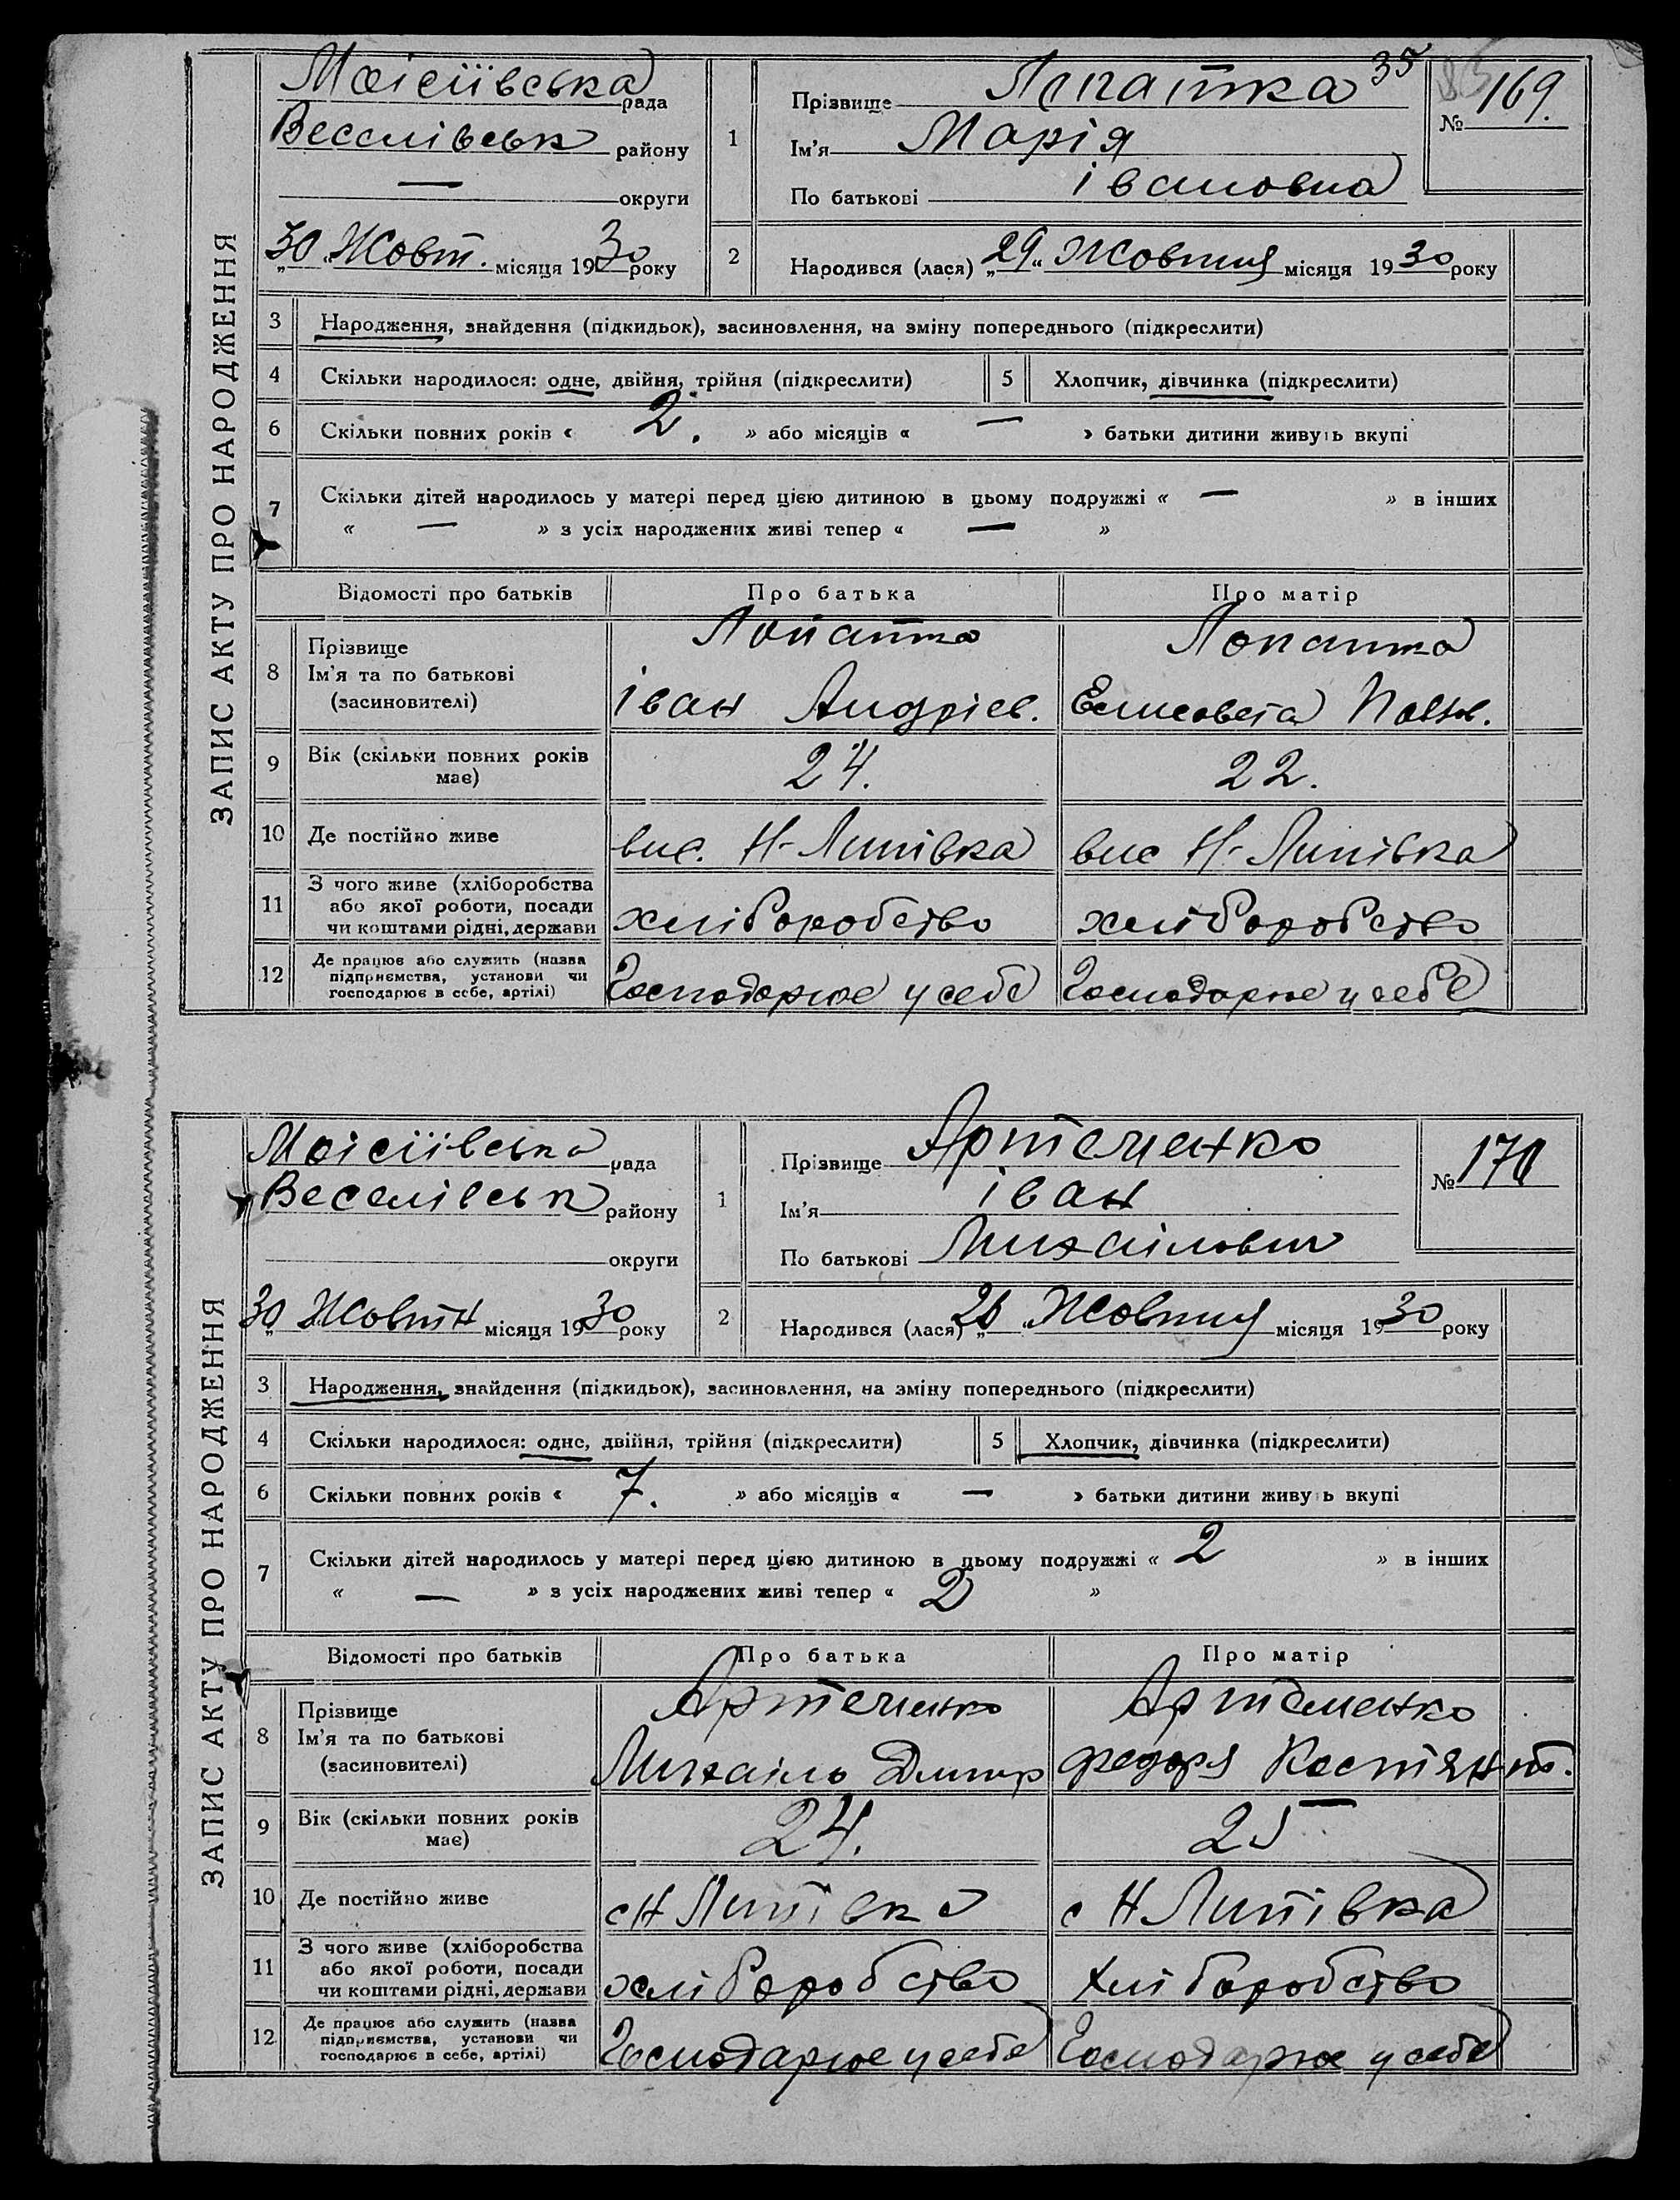 ЗАПИС АКТУ ПРО НАРОДЖЕННЯ
Моісіївська рада
Веселівськ району
— округи
„30“ Жовт. місяця 1930 року
1
Прізвище Лопатка 35
Ім'я Марія
По батькові івановна
№ 169.
2
Народився (лася) „29“ Жовтня місяця 1930 року
3 Народження, знайдення (підкидьок), засиновлення, на зміну попереднього (підкреслити)
4 Скільки народилося: одне, двійня, трійня (підкреслити) 5 Хлопчик, дівчинка (підкреслити)
6 Скільки повних років « 2. » або місяців « — » батьки дитини живуть вкупі
7 Скільки дітей народилось у матері перед цією дитиною в цьому подружжі « — » в інших
« — » з усіх народжених живі тепер « — »
Відомості про батьків Про батька Про матір
8 Прізвище
Ім'я та по батькові
(засиновителі)
Лопатка
іван Андрієв.
Лопатка
Елисовета
9 Вік (скільки повних років
має)
24. 22.
10 Де постійно живе вис. Н-Липівка вис Н-Липівка
11 З чого живе (хліборобства
або якої роботи, посади
чи коштами рідні, держави
хліборобство хліборобство
12 Де працює або служить (назва
підприємства, установи чи
господарює в себе, артілі)
Господарює у себе Господарює у себе
ЗАПИС АКТУ ПРО НАРОДЖЕННЯ
Моісіївська рада
Веселівськ району
округи
„30 Жовтн місяця 1930 року
1
Прізвище Артеменко
Ім'я іван
По батькові Михайлович
№ 170
2
Народився (лася) „26 Жовтня місяця 1930 року
3 Народження, знайдення (підкидьок), засиновлення, на зміну попереднього (підкреслити)
4 Скільки народилося: одне, двійня, трійня (підкреслити) 5 Хлопчик, дівчинка (підкреслити)
6 Скільки повних років « 7. » або місяців « — » батьки дитини живуть вкупі
7 Скільки дітей народилось у матері перед цією дитиною в цьому подружжі « 2 » в інших
« — » з усіх народжених живі тепер « 2 »
Відомості про батьків Про батька Про матір
8 Прізвище
Ім'я та по батькові
(засиновителі)
Артеменко
Михаіло Дмитр
Артеменко
федора Костянт.
9 Вік (скільки повних років
має)
24. 25
10 Де постійно живе с Н Липівка с Н Липівка
11 З чого живе (хліборобства
або якої роботи, посади
чи коштами рідні, держави
хліборобство хліборобство
12 Де працює або служить (назва
підприємства, установи чи
господарює в себе, артілі)
Господарює у себе Господарює у себе